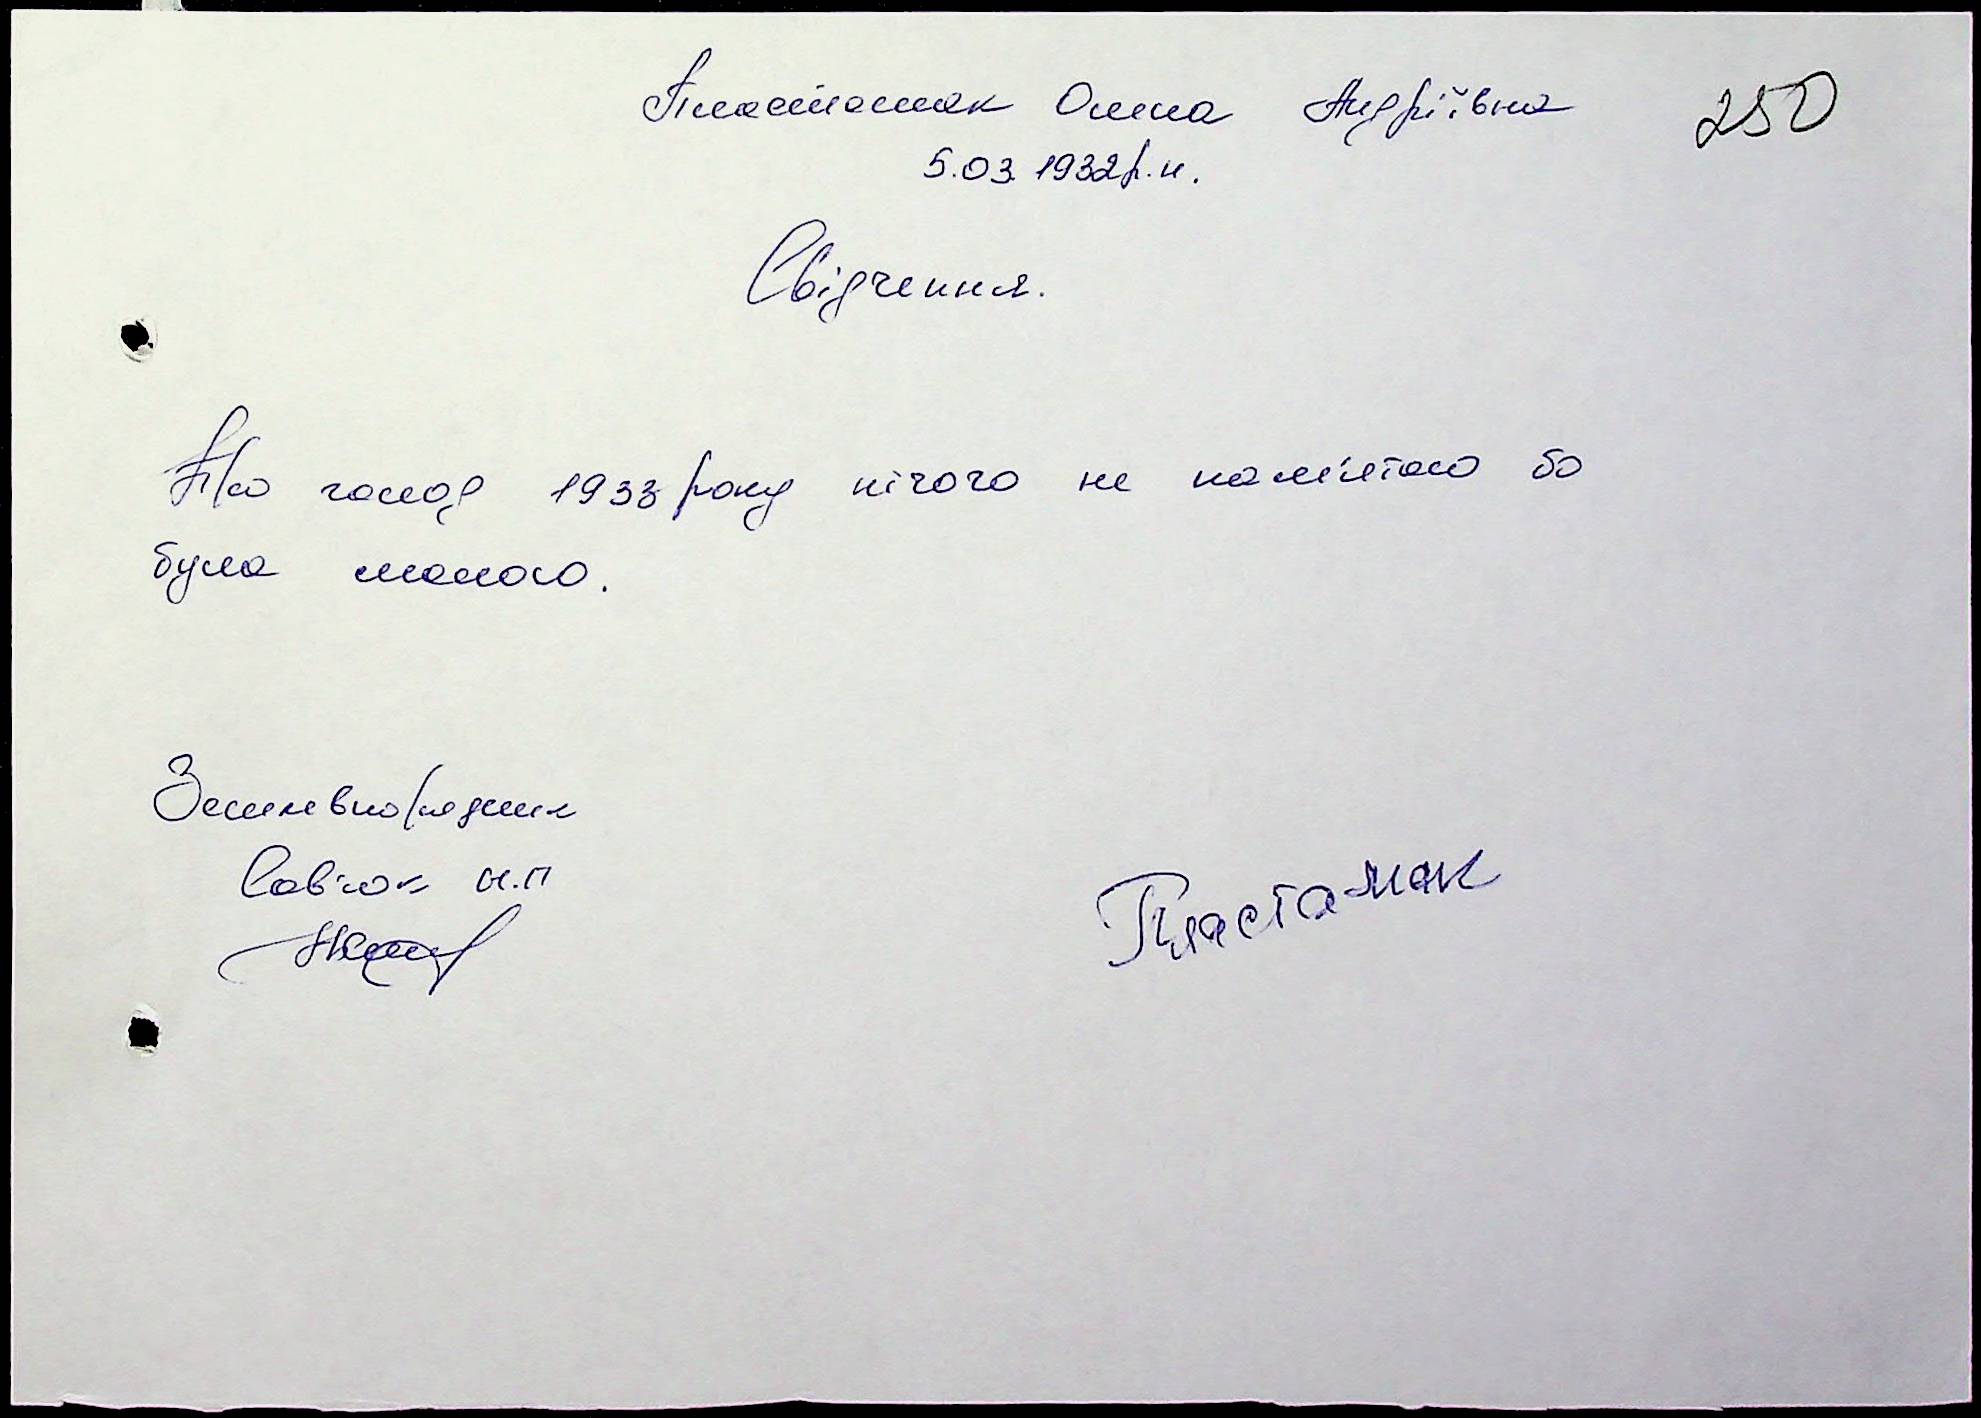 Пластамак Олена Андріївна 250
5.03 1932 р.н.
Свідчення.
Про голод 1933 року нічого не пам'ятаю бо
була малою.
Землевпорядник
Савіюк Н.П
Пластамак